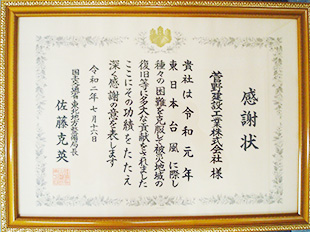 感謝状
菅野建設工業株式会社 様
貴社は令和元年
東日本台風に際し
種々の困難を克服して被災地域の
復旧等に多大な貢献をされました
ここにその功績をたたえ
深く感謝の意を表します
令和二年七月十六日
国土交通省東北地方整備局長
佐藤克英